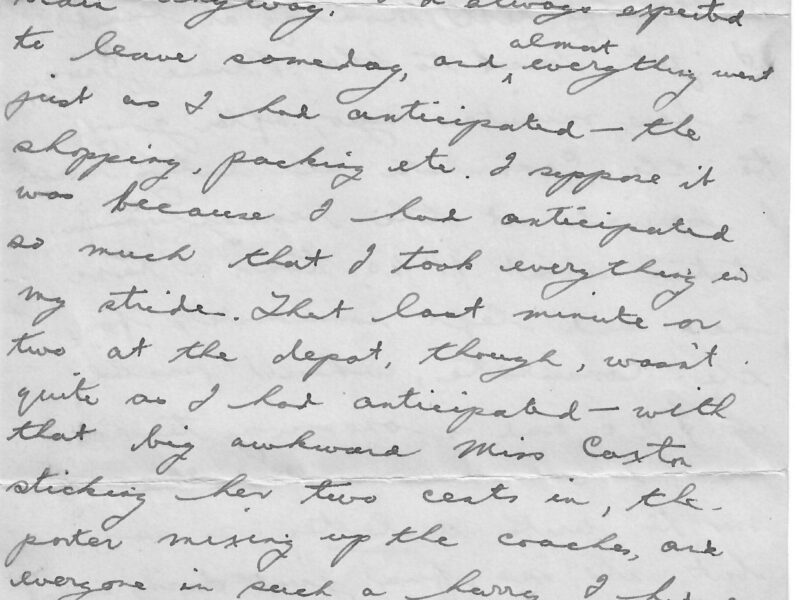 anyway. I'd always expected
to leave someday, and almost everything went
just as I had anticipated — the
shopping, packing etc. I suppose it
was because I had anticipated
so much that I took everything in
my stride. That last minute or
two at the depot, though, wasn't
quite as I had anticipated — with
that big awkward Miss Caxton
sticking her two cents in, the
porter mixing up the coaches, and
everyone in such a hurry I had